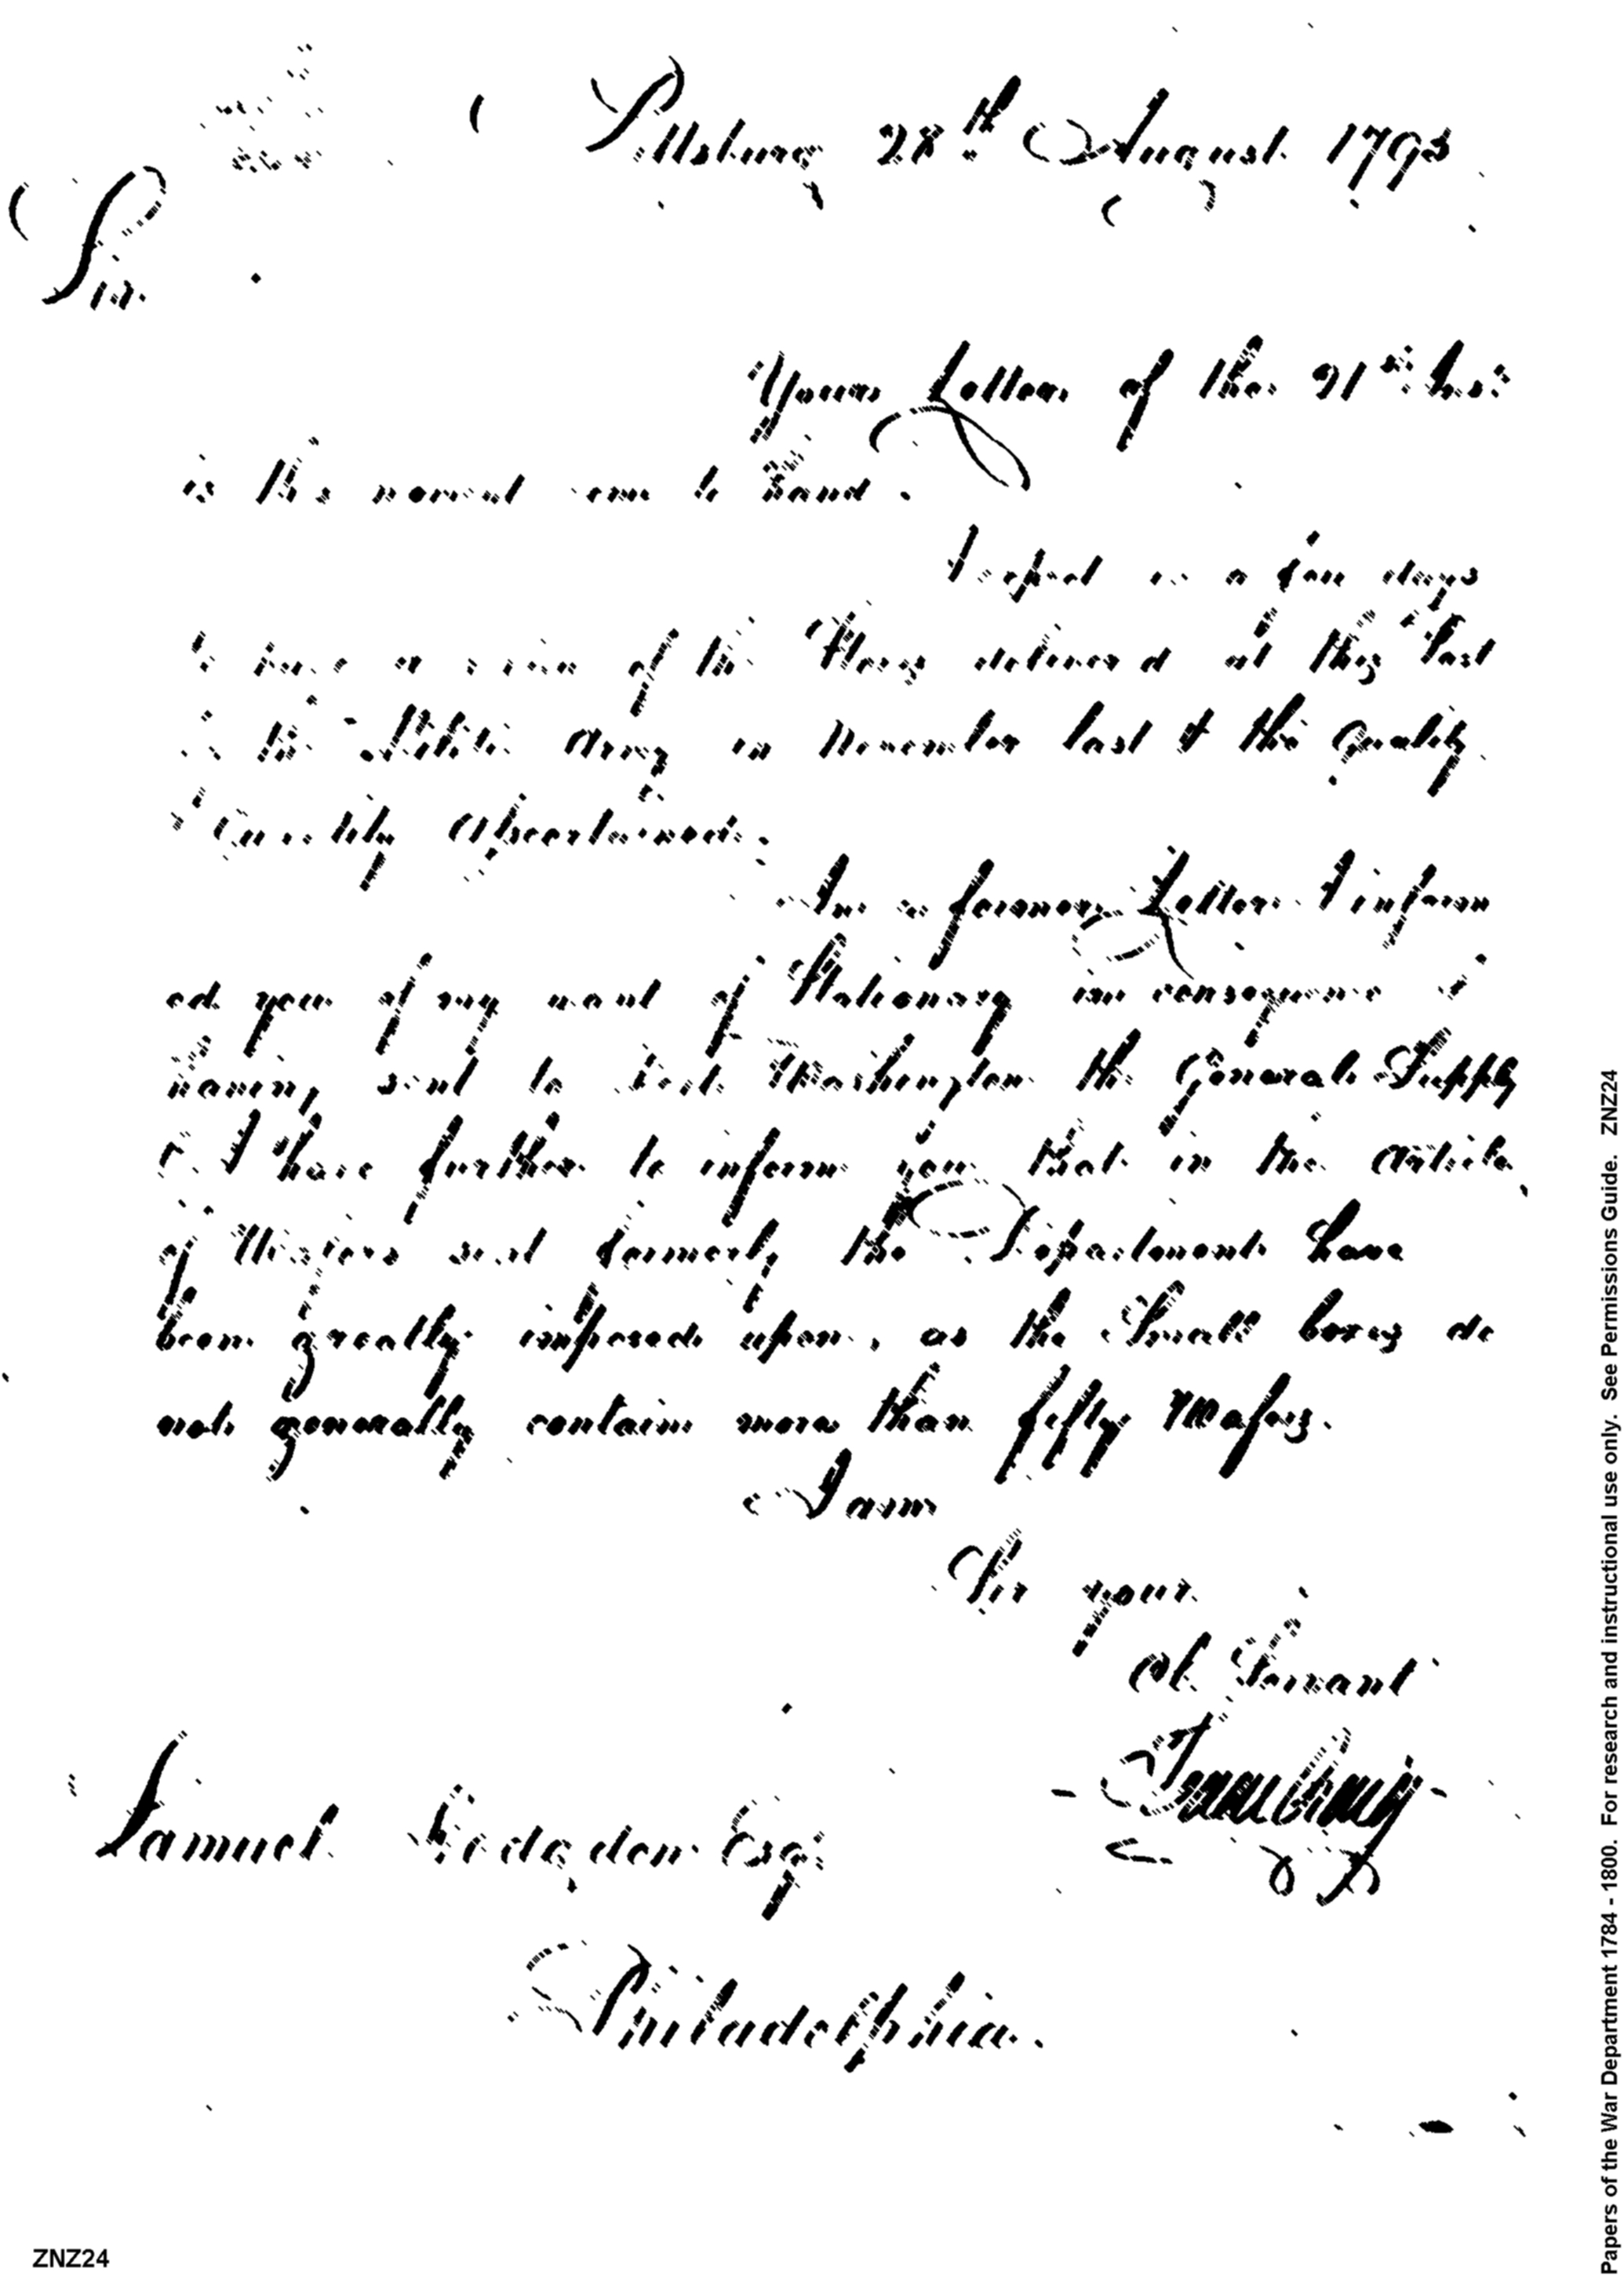 Pittsburg 28th August 1793
Sir.
Your Letter of the 21st Inst
is this moment come to hand.
I expect in a few days
to have a view of the Stores delivered at this Post
the Army in November last & the Quality
& Quantity Ascertained.
In a former Letter I inform
ed you of my want of Stationary in consequence of
having sent to Fort Washington the General Supply
I have further to inform you that in the Article
of Wafers sent formerly the Department have
been greatly imposed upon, as the Small boxes do
not generally contain more than fifty Wafers.
I am
Sir your
Ob. Servant
Isaac Craig
Samuel Hodgdon Esq:
Philadelphia.
ZNZ24
Papers of the War Department 1784 - 1800. For research and instructional use only. See Permissions Guide. ZNZ24